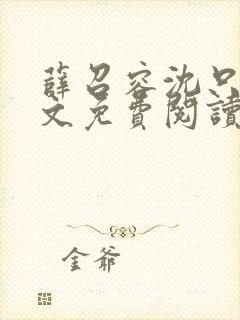 薛召容沈口
文免費閱讀
金爺